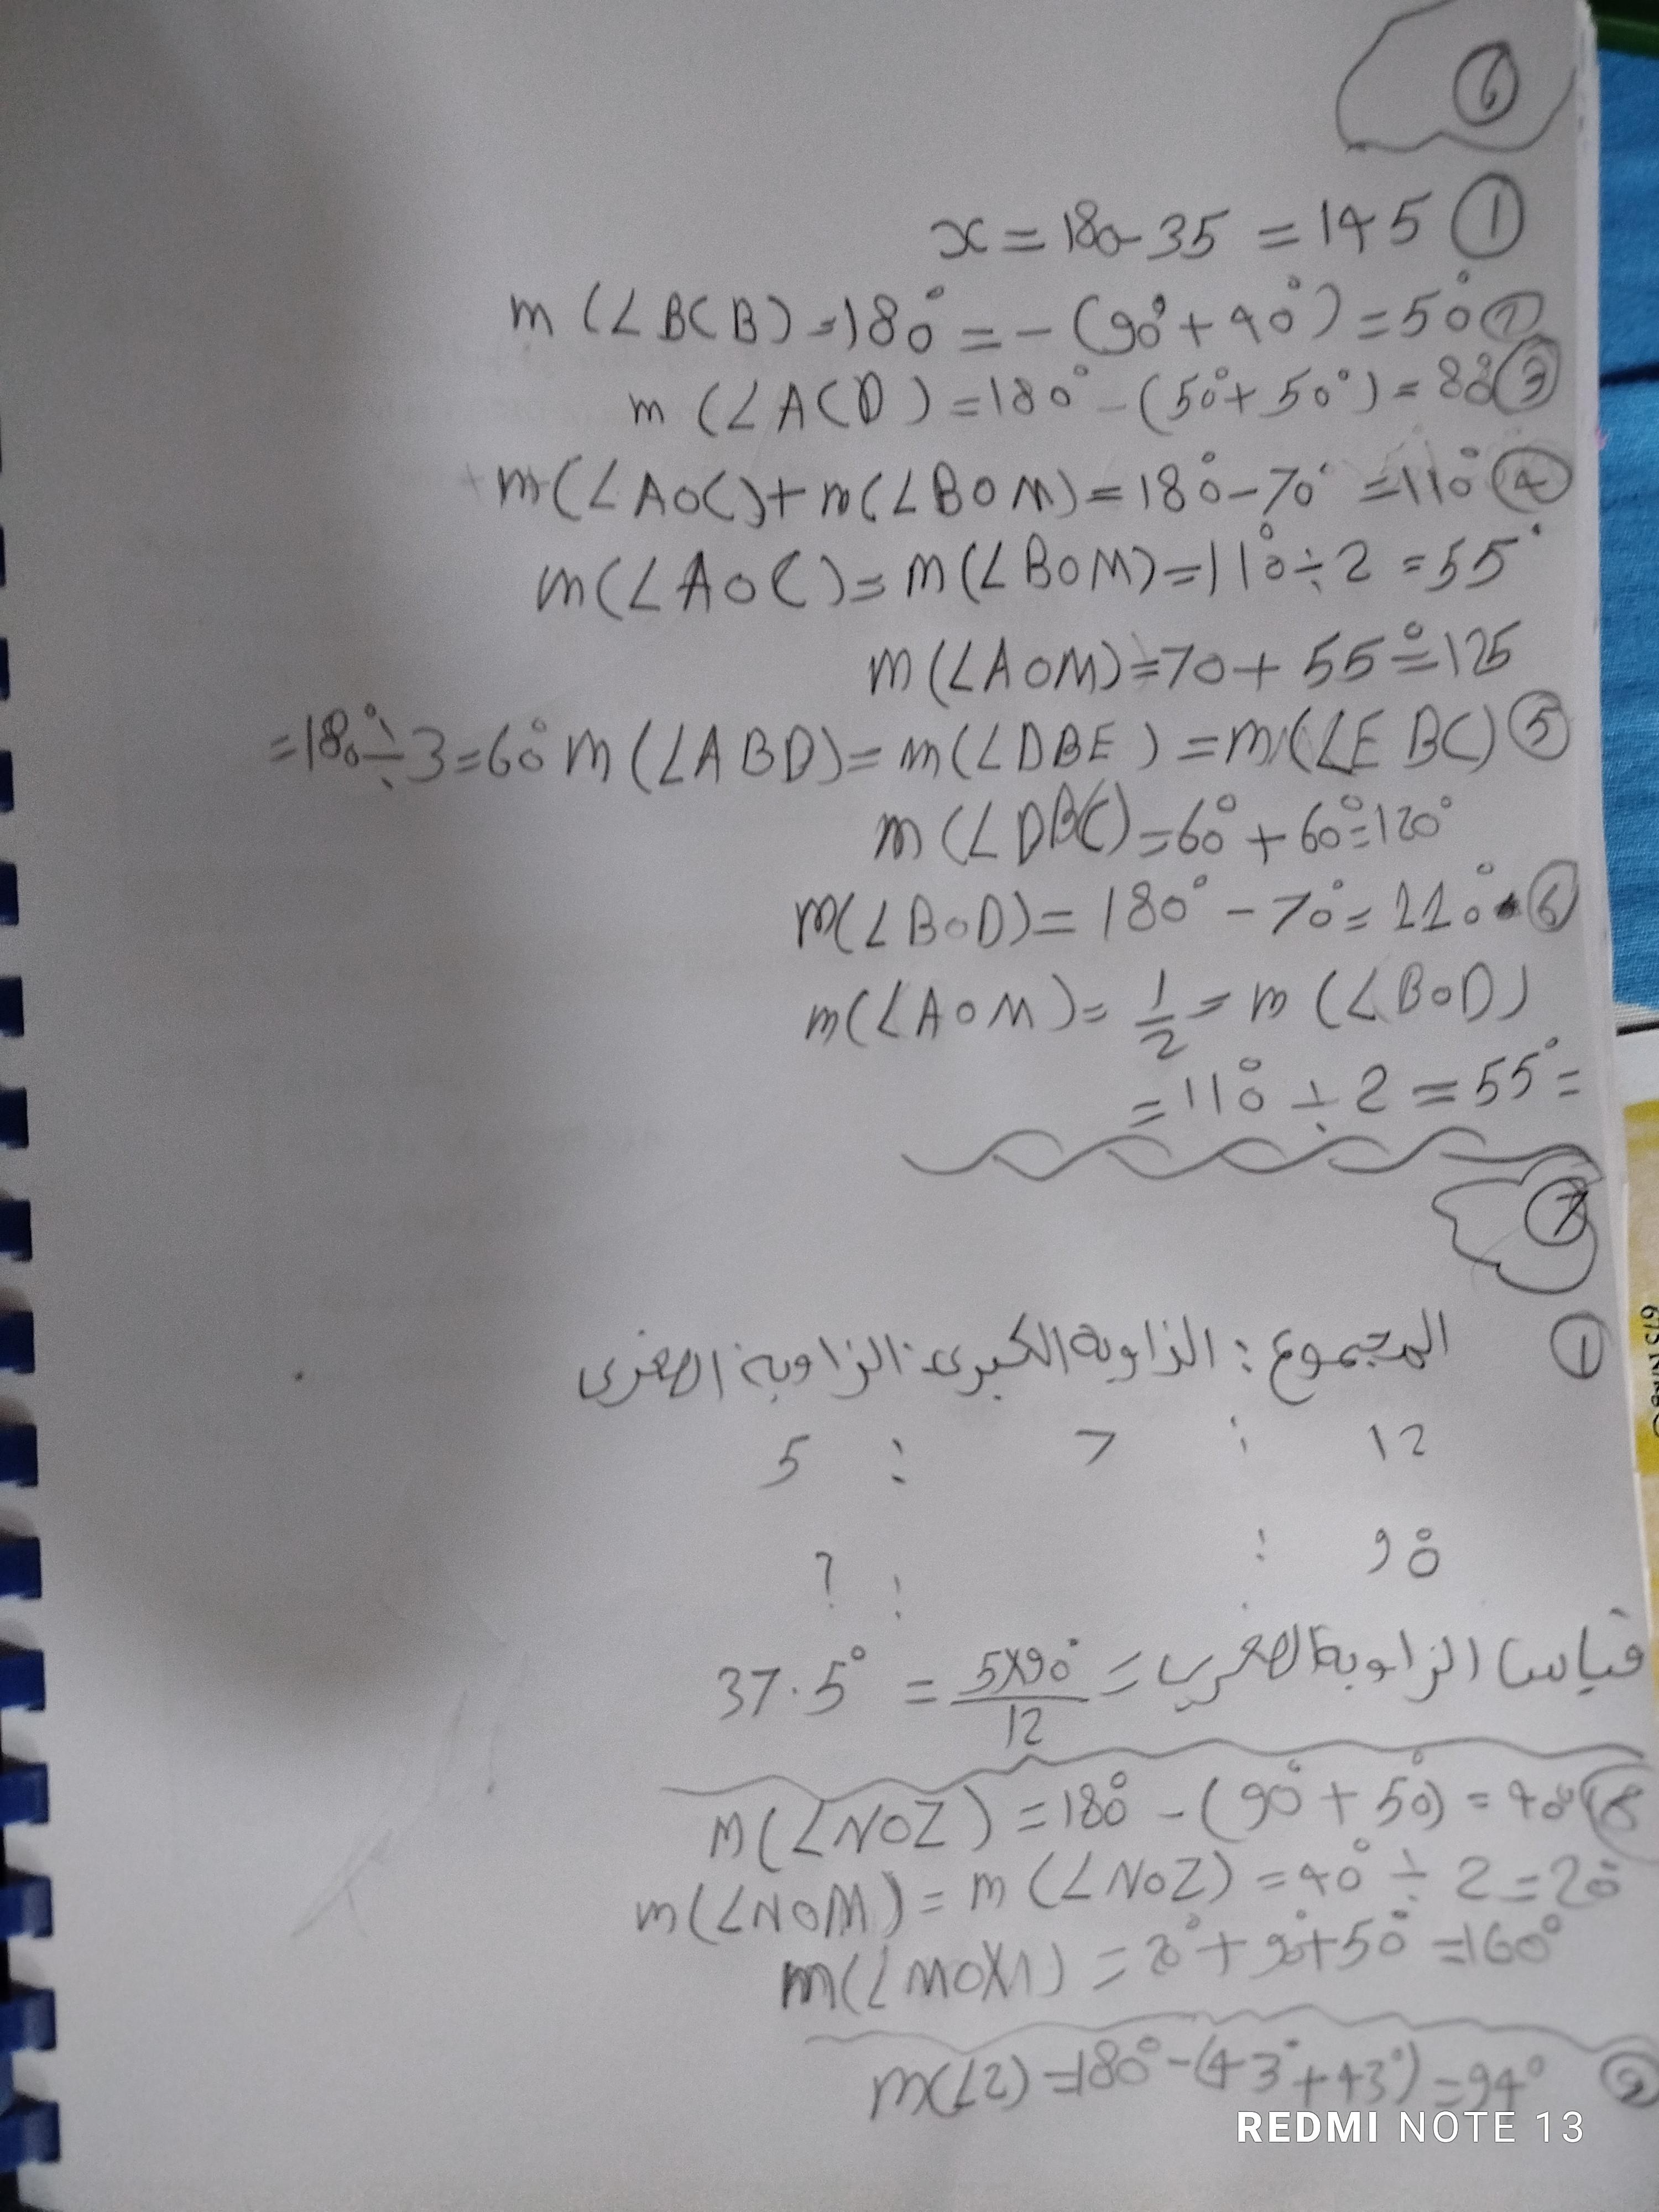 6
x = 180 - 35 = 145 ①
m (∠BCB) = 180° = - (90° + 40°) = 50° ②
m (∠ACD) = 180° - (50° + 50°) = 80° ③
m(∠AOC) + m(∠BOM) = 180° - 70° = 110° ④
m(∠AOC) = m(∠BOM) = 110° ÷ 2 = 55°
m(∠AOM) = 70 + 55° = 125
= 180° ÷ 3 = 60° m(∠ABD) = m(∠DBE) = m(∠EBC) ⑤
m(∠DBC) = 60° + 60° = 120°
m(∠BOD) = 180° - 70° = 110° ⑥
m(∠AOM) = 1/2 = m (∠BOD)
= 110° ÷ 2 = 55° =
7
① المجموع : الزاوية الكبرى : الزاوية الصغرى
12 : 7 : 5
90° : : ?
قياس الزاوية الصغرى = 5×90°/12 = 37.5°
m(∠NOZ) = 180° - (90° + 50°) = 40° ⑧
m(∠NOM) = m(∠NOZ) = 40° ÷ 2 = 20°
= 20° + 90° + 50° = 160°
m(∠2) = 180° - (43° + 43°) = 94° ⑨
REDMI NOTE 13